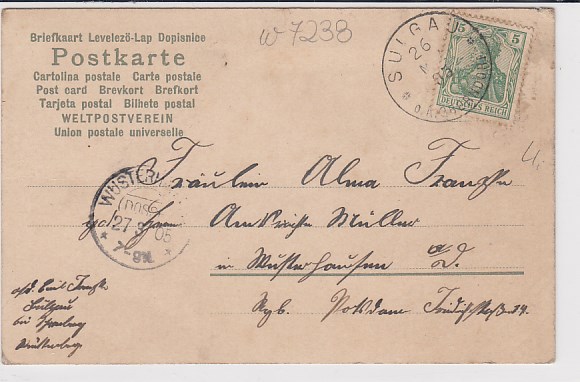 Briefkaart Levelezö-Lap Dopisnice
Postkarte
Cartolina postale Carte postale
Post card Brevkort Brefkort
Tarjeta postal Bilhete postal
WELTPOSTVEREIN
Union postale universelle
w 7238
SULGAU
26
5
5
DEUTSCHES REICH
WUSTERH
(DOSSE)
27
05
7-8N.
Fräulein Alma Franske
Herrn Amtsrichter Müller
in Wusterhausen a/D.
Potsdam
abs. Emil Franske
Sulgau
bei Schramberg
Württemberg